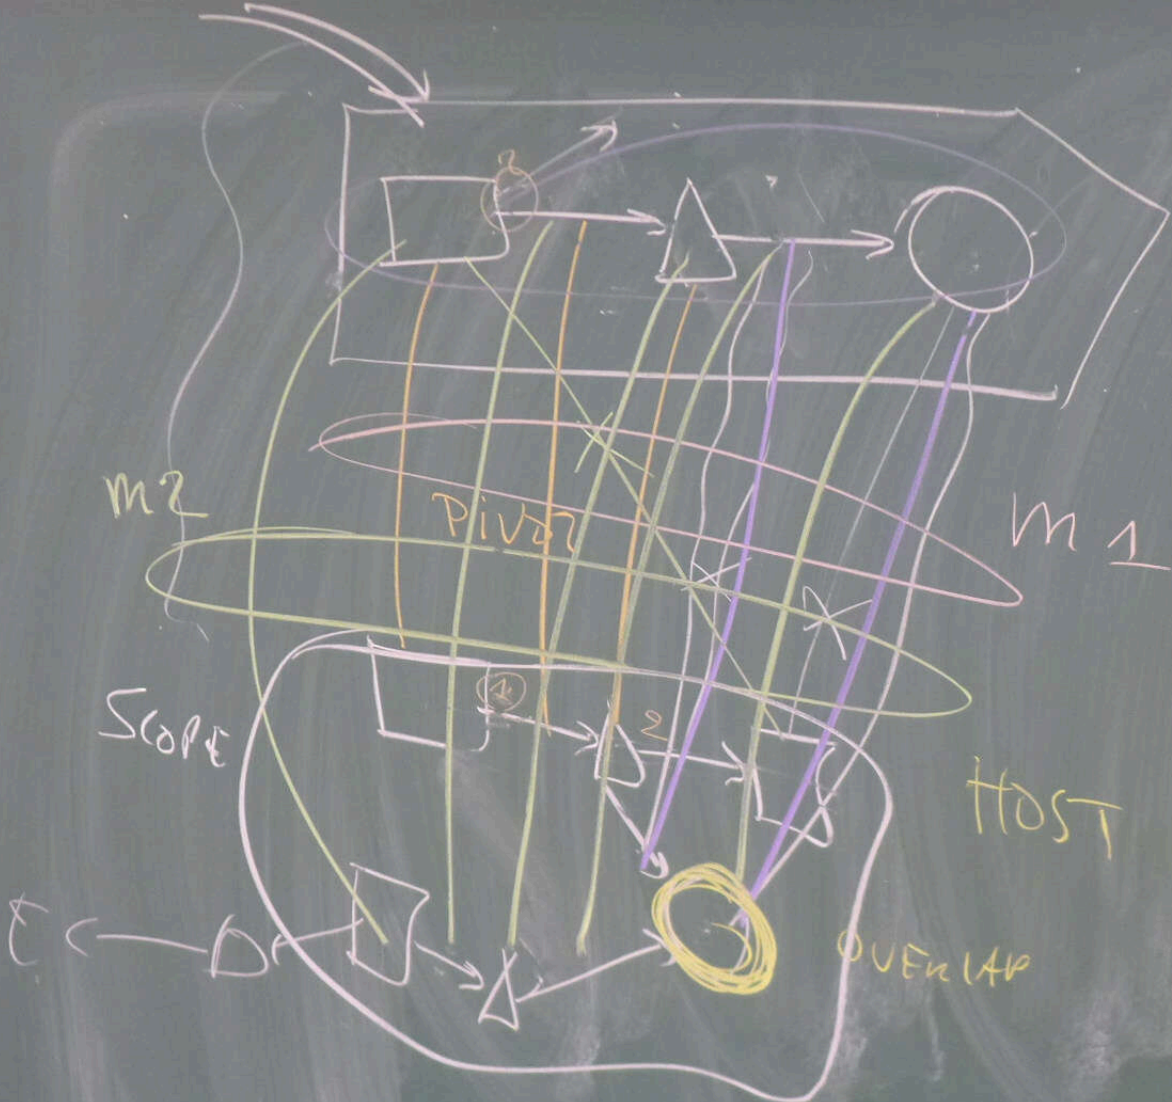 m2
Pivot
m 1
1
2
SCOPE
HOST
OVERLAP